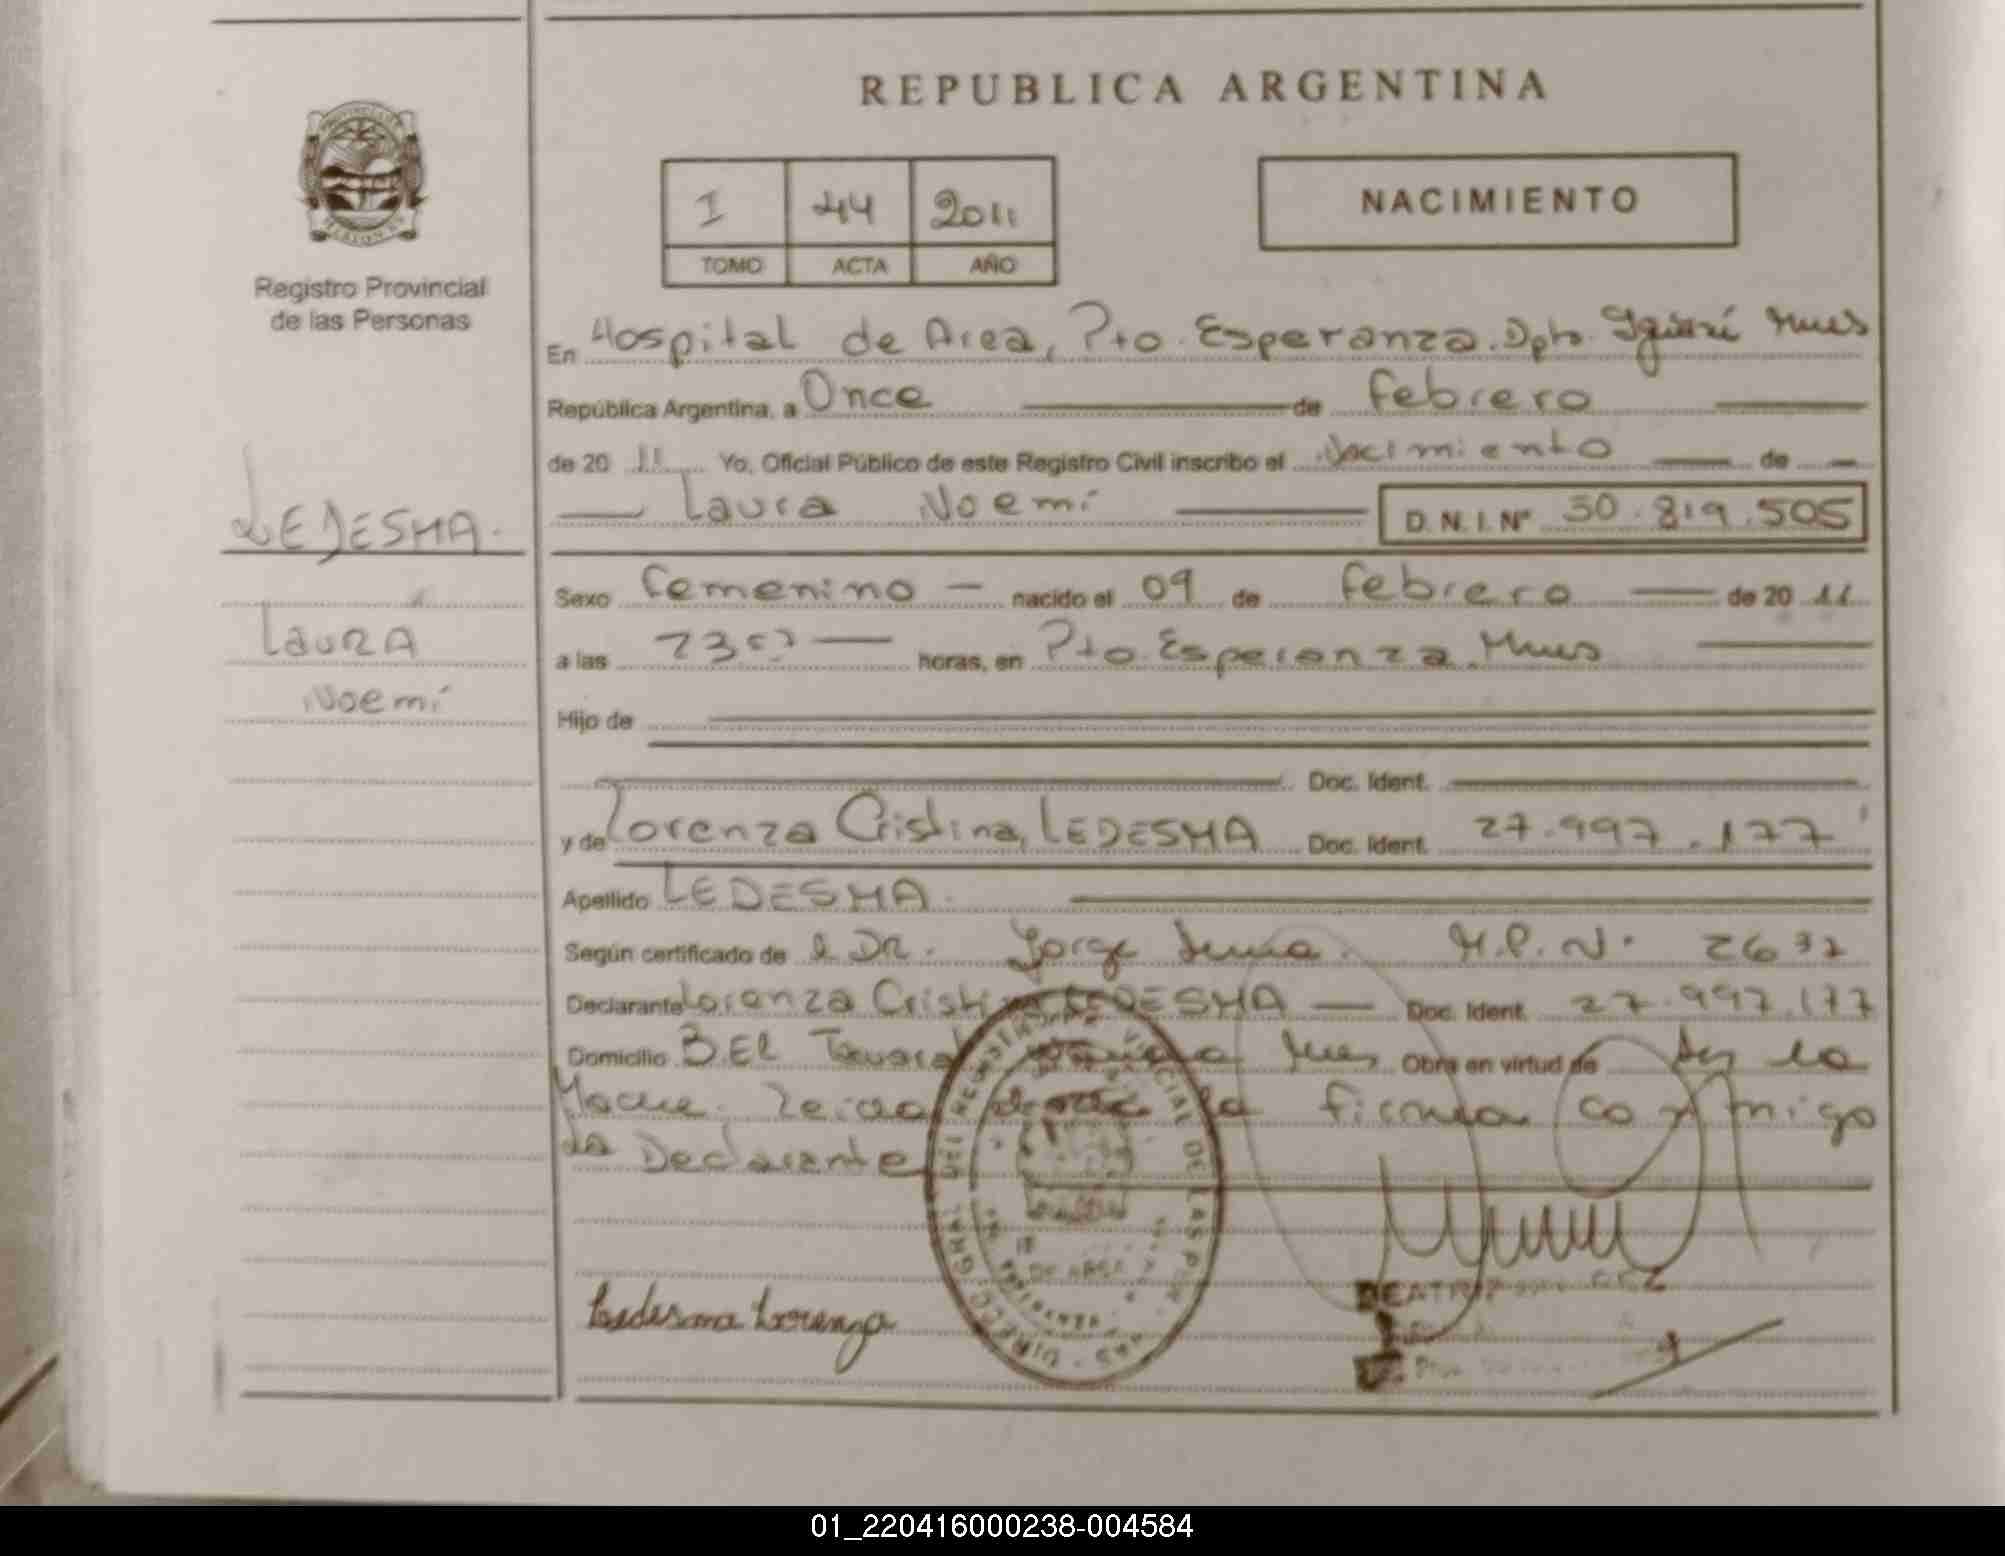 REPUBLICA ARGENTINA
I 44 2011
TOMO ACTA AÑO
NACIMIENTO
Registro Provincial
de las Personas
En Hospital de Area, Pto. Esperanza. Dpto. Iguazú Mnes
República Argentina, a Once de febrero
de 20 11 Yo, Oficial Público de este Registro Civil inscribo el Nacimiento de
Laura Noemí D.N.I.Nº 30.819.505
LEDESMA.
Laura
Noemí
Sexo femenino nacido el 09 de febrero de 20 11
a las horas, en Pto. Esperanza. Mnes
Hijo de
Doc. Ident.
y de Lorenza Cristina, LEDESMA Doc. Ident. 27.997.177
Apellido LEDESMA.
Según certificado de l Dr. Jorge M.P.N. 2632
Declarante Lorenza Cristina LEDESMA Doc. Ident. 27.997.177
Domicilio B. El Mnes Obra en virtud de Ser la
Madre. Leida el acta la firma conmigo
la Declarante
Ledesma Lorenza
BEATRIZ
01_220416000238-004584